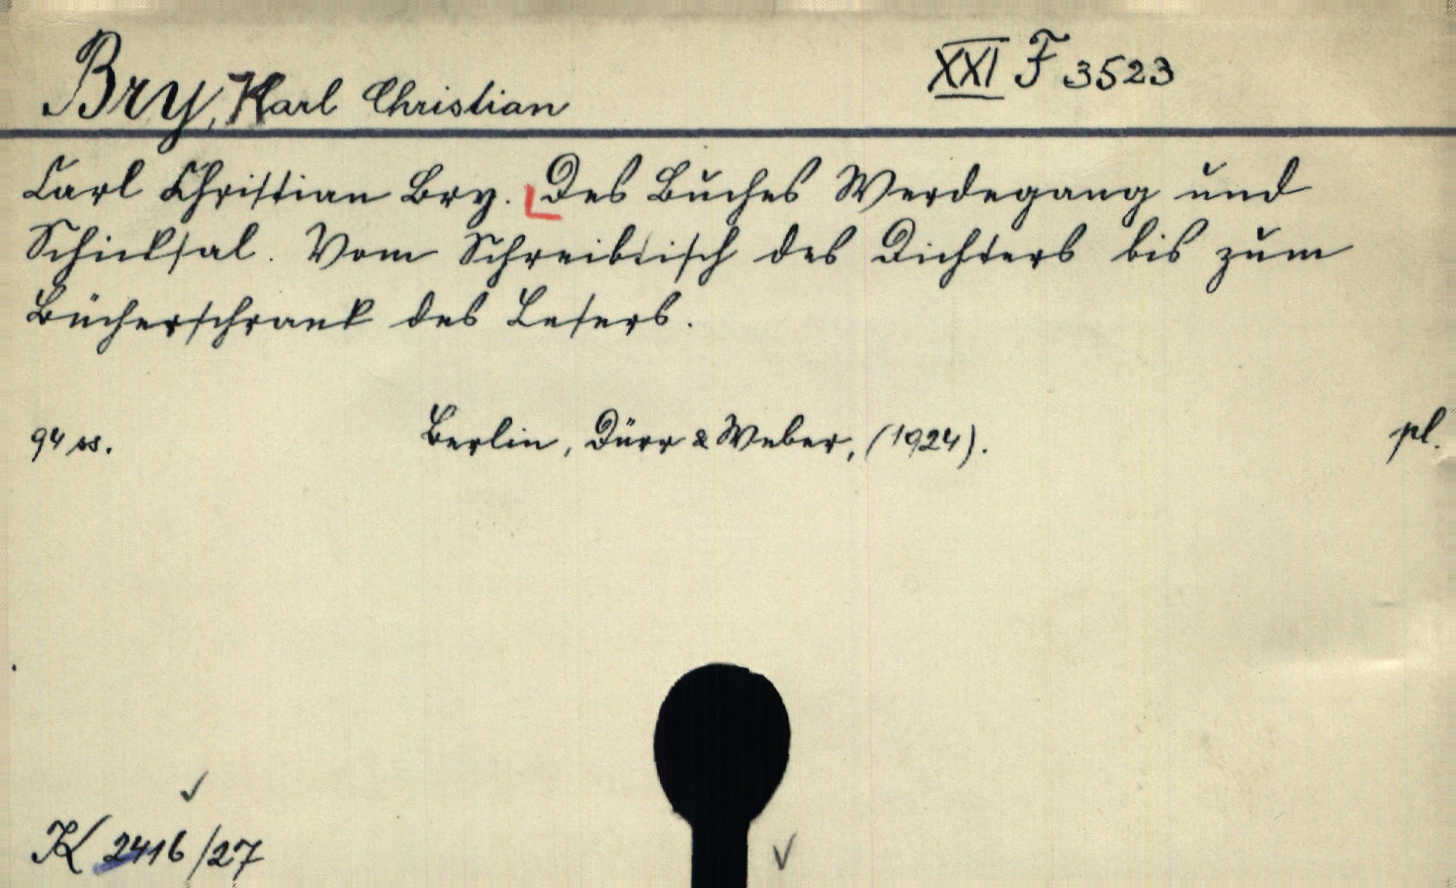 Bry, Karl Christian
XXI F 3523
Carl Christian Bry. Des Buches Werdegang und
Schicksal. Vom Schreibtisch des Dichters bis zum
Bücherschrank des Lesers.
94 ss. Berlin, Dürr & Weber, (1924). pl.
K 2416/27